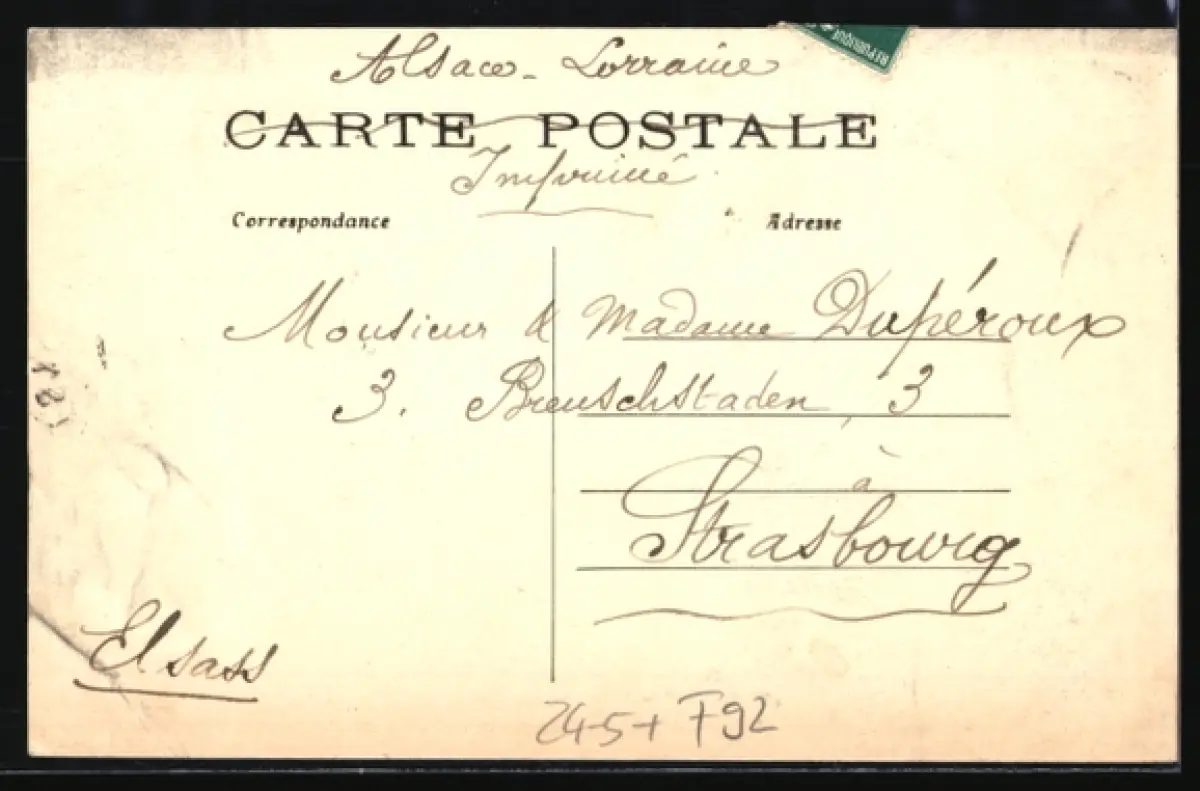 REPUBLIQUE
Alsace-Lorraine
CARTE POSTALE
Imprimé
Correspondance
Adresse
Monsieur & Madame Dupéroux
3. Breuschstaden, 3
à
Strasbourg
Elsass
24-5+ F92